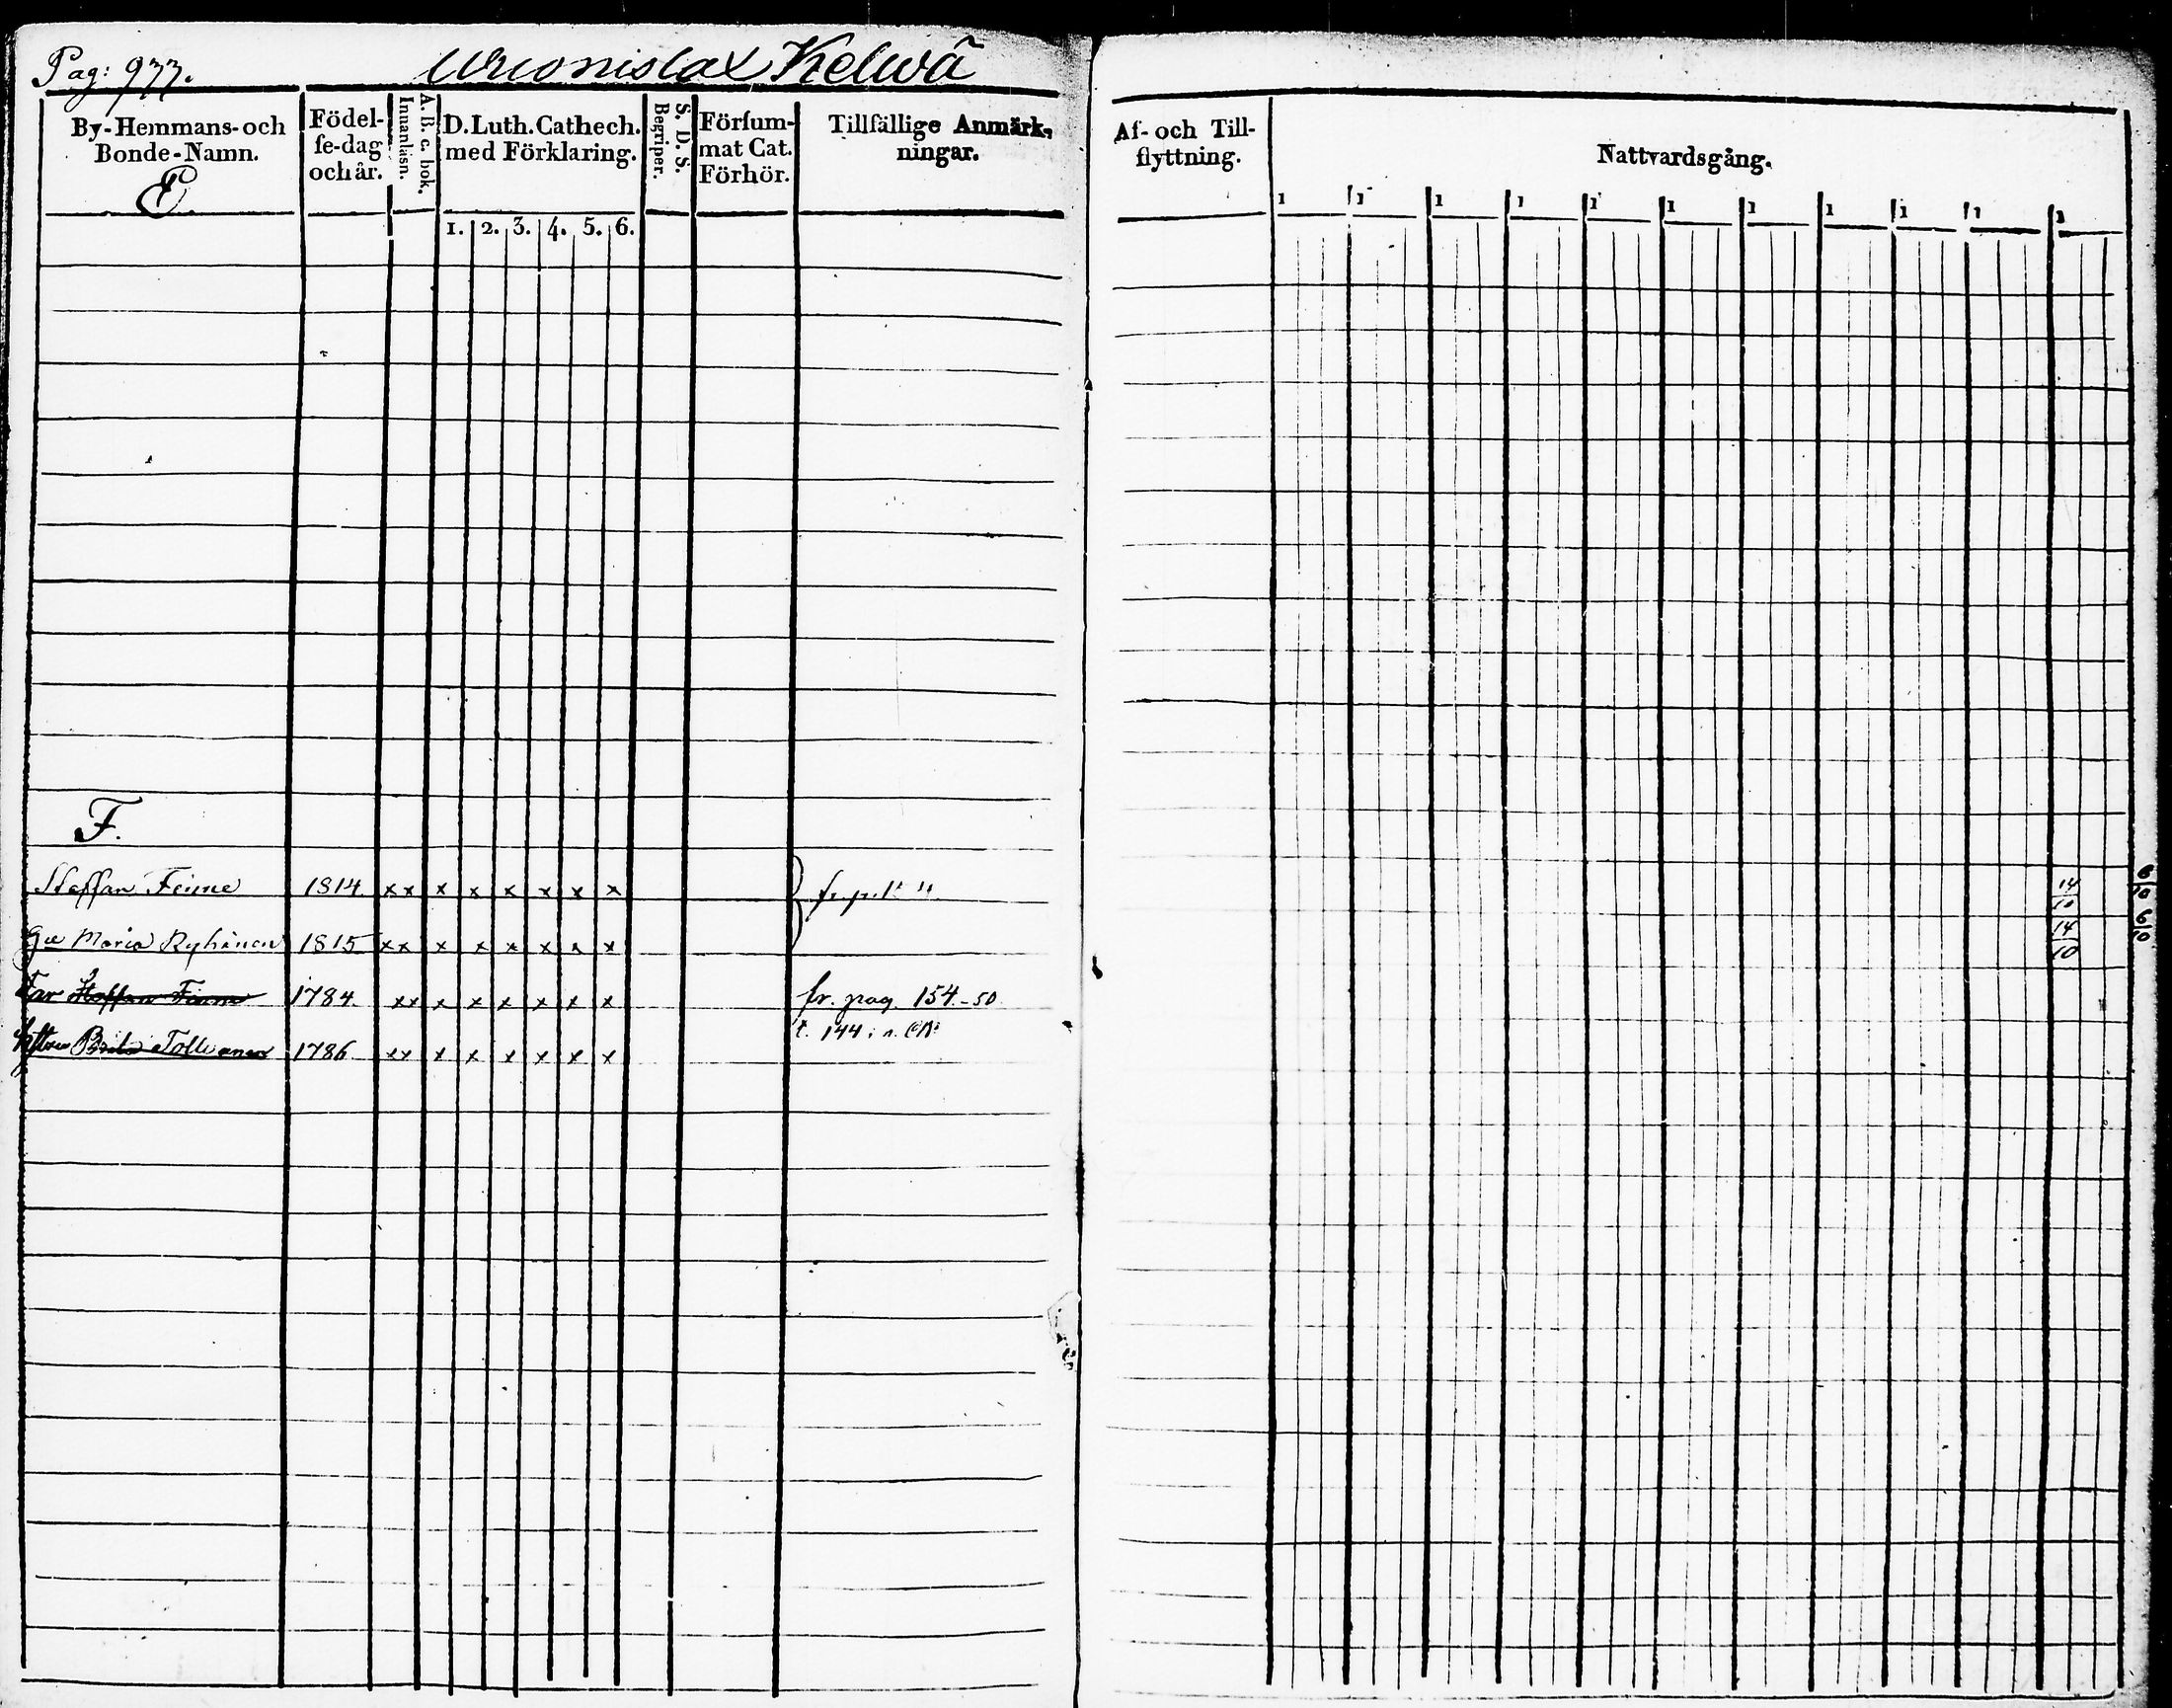 Pag: 977. Kelwå
By-Hemmans-och Bonde-Namn.
Födel-se-dag och år.
Innanläsn.
A. B. c. bok.
D. Luth. Cathech. med Förklaring.
S. D. S.
Begriper.
Försum-mat Cat. Förhör.
Tillfällige Anmärk-ningar.
Af- och Till-flyttning.
Nattvardsgång.
E.
1 1 1 1 1 1 1 1 1 1 1
1. 2. 3. 4. 5. 6.
F.
Staffan Finne 1814. x x x x x x x x 14/10 6/10
Maria Ryhänen 1815 x x x x x x x x 14/10 6/10
Far Staffan Finne 1784. x x x x x x x x fr. pag. 154.-50
t. 144
Hustru Brita Tolwanen 1786 x x x x x x x x